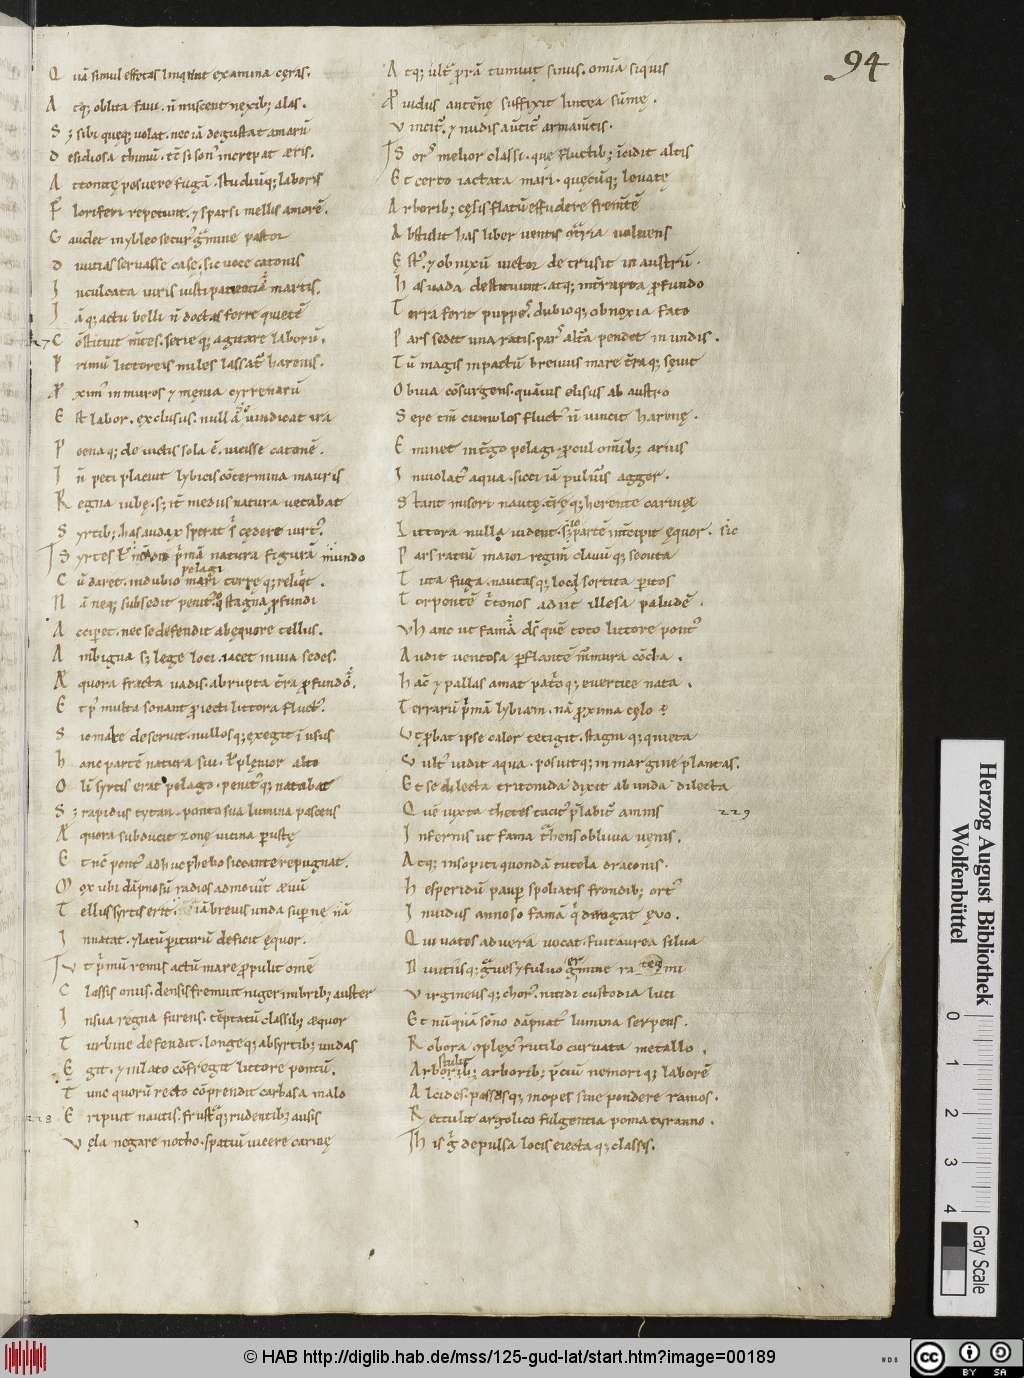 94
Q uā simul effetas linquunt examina cęras.
A tq; oblita faui. ñ miscent nexib; alas.
S ; sibi queq; uolat. nec iā degustat amarū
D esidiosa thimū. tc̄ si son' increpat æris.
A ttonitę posuere fugā. studiūq; laboris
F loriferi repetunt. ⁊ sparsi mellis amorē.
G audet in ybleo secur' g̃mine pastor
D iuitias seruasse casę. sic uoce catonis
I nculcata uiris iusti patientia martis.
I ā q; actu belli ñ doctas ferre quietē
C ōstituit m̄tes. serieq; agitare laborū.
P rimū littoreis miles lassat' harenis.
P xim' in muros ⁊ męnia cyrrenarū
E st labor. exclusus. nulla uindicat ira
P oenaq; de uictis sola ē. uicisse catonē.
I ñ peti placuit lybicis cōtermina mauris
R egna iubę. s; it̃ medus natura uetabat
S yrtib; has audax sperat s̃ cędere uirt'.
S yrtes ł p̃mā natura figurā mundo
C ū daret. in dubio mari pelagi terręq; reliq̃t.
N ā neq; subsedit penit' q̊ stagna p̃fundi
A cciperet. nec se defendit ab equore tellus.
A mbigua s; lege loci. iacet inuia sedes.
Æ quora fracta uadis. abruptaq; t̃ra p̃fundo.
E t p' multa sonant p̃iecti littora fluct'.
S ic male deseruit. nullosq; exegit ī usus
H anc partē natura sui. ł plenior alto
O lī syrtis erat pelago. penit'q; natabat
S ; rapidus tytan. ponto sua lumina pascens
Æ quora subducit zonę uicina p̱ustę
E t nc̄ pont' adhuc phebo siccante repugnat.
M ox ubi dāpnosū radios admoūit æuū
T ellus syrtis erit. iā breuis unda superne iñ
I nnatat. ⁊ latū p̱iturū deficit ęquor.
V t p̃mū remis actū mare p̃pulit omē
C lassis onus. densis fremuit niger imbrib; auster
I n sua regna furens. tēptatū classib; æquor
T urbine defendit. longeq; a syrtib; undas
E git. ⁊ inlato cōfregit littore pontū.
T unc quorū recto cōprendit carbasa malo
E ripuit nautis. frust̃q; rudentib; ausis
V ęla negare notho. spatiū uicere carinę
A tq; ult̃ p̃rā tumuit sinus. omīa siquis
P uidus antēnę suffixit lintea sūmę.
V incit'. ⁊ nudis au̅tit' armam̄tis.
S ors melior classi. quę fluctib; īcidit altis
E t certo iactata mari. quęcūq; leuatę
A rborib; cęsis flatū effudere fremētē
A bstulit has liber uentis ɔtraria voluens
Ę st'. ⁊ obnixū uictor detrusit in austrū.
H as uada destituunt. atq; int̃rupta p̃fundo
T erra ferit puppes. dubioq; obnoxia fato
P ars sedet una ratis. pars altā pendet in undis.
T ū magis inpactū breuius mare t̃raq; sęuit
O buia cōsurgens. quāuis elisus ab austro
S epe tm̄ cumulos fluct' ñ uincit harenę.
E minet in t̃go pelagi p̃cul om̄ib; aruis
I nuiolat' aqua. sicci iā puluīs agger.
S tant miseri nautę. t̃ręq; herente carina
L ittora nulla uident. s; partē int̃cipit ęquor. sic
P ars ratiū maior regim̄ clauūq; secuta
T uta fuga. nautasq; loci sortita p̱itos
T orpentē t̃tonos adiit illesa paludē.
H anc ut fama ds̄ quē toto littore pont'
A udit uentosa p̱flantē m̃mura cōcha.
H anc ⁊ pallas amat pat̃oq; e uertice nata.
T errarū p̃mā lybiam. nā p̃xima cęlo ē
V t p̃bat ipse calor tetigit. stagniq; quieta
V ult' uidit aqua. posuitq; in margine plantas.
E t se dilecta tritonida dixit ab unda dilecta
Q uē iuxta lhetes tacit' p̃labit' amnis
I nfernis ut fama t̃hens obliuia uęnis.
A tq; insopiti quondā tutela draconis.
H esperidū paup̱ spoliatis frondib; ort'
I nuidus annoso famā q' derogat ęuo.
Q ui uates ad uera uocat. fuit aurea silua
D iuitiisq; g̃ues ⁊ fuluo g̃mine rami
V irgineusq; chor'. nitidi custodia luci
E t nūquā sōno dāpnat' lumina serpens.
R obora ɔplex' rutilo curuata metallo.
A rborib; arborib; p̃ciū nemoriq; laborē
A lcides. passusq; inopes sine pondere ramos.
R ettulit argolico fulgentia poma tyranno.
H is g̃ depulsa locis eiectaq; classis.
228
229
Herzog August Bibliothek
Wolfenbüttel
0 1 2 3 4
Gray Scale
© HAB http://diglib.hab.de/mss/125-gud-lat/start.htm?image=00189
cc BY SA